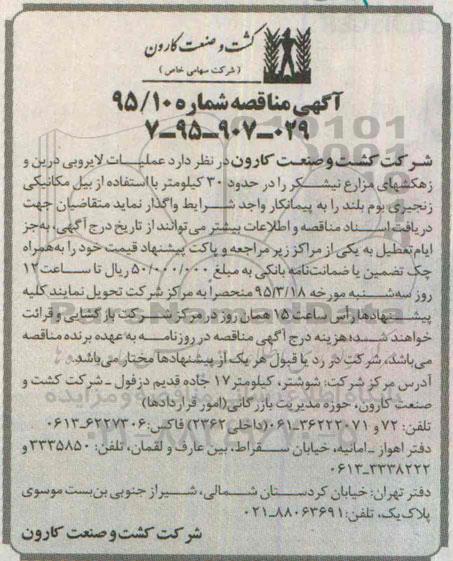 کشت و صنعت کارون
( شرکت سهامی خاص )
آگهی مناقصه شماره ۹۵/۱۰
۷-۹۵-۹۰۷-۰۲۹
شرکت کشت و صنعت کارون در نظر دارد عملیات لایروبی درین و
زهکشهای مزارع نیشکر را در حدود ۳۰ کیلومتر با استفاده از بیل مکانیکی
زنجیری بوم بلند را به پیمانکار واجد شرایط واگذار نماید متقاضیان جهت
دریافت اسناد مناقصه و اطلاعات بیشتر می توانند از تاریخ درج آگهی، به‌جز
ایام تعطیل به یکی از مراکز زیر مراجعه و پاکت پیشنهاد قیمت خود را به‌همراه
چک تضمین یا ضمانت‌نامه بانکی به مبلغ ۵۰/۰۰۰/۰۰۰ ریال تا ساعت ۱۲
روز سه‌شنبه مورخه ۹۵/۳/۱۸ منحصرا به مرکز شرکت تحویل نمایند کلیه
پیشنهادها رأس ساعت ۱۵ همان روز در مرکز شرکت بازگشایی و قرائت
خواهند شد؛ هزینه درج آگهی مناقصه در روزنامه به عهده برنده مناقصه
می‌باشد، شرکت در رد یا قبول هر یک از پیشنهادها مختار می‌باشد.
آدرس مرکز شرکت: شوشتر، کیلومتر ۱۷ جاده قدیم دزفول - شرکت کشت و
صنعت کارون، حوزه مدیریت بازرگانی (امور قراردادها)
تلفن: ۷۲ و ۳۶۲۲۳۰۷۱-۰۶۱ (داخلی ۲۳۶۲) فاکس: ۶۲۲۷۳۰۶-۰۶۱۳
دفتر اهواز - امانیه، خیابان سقراط، بین عارف و لقمان، تلفن: ۳۳۳۵۸۵۰ و
۳۳۳۸۲۲۲-۰۶۱۳
دفتر تهران: خیابان کردستان شمالی، شیراز جنوبی بن‌بست موسوی
پلاک یک، تلفن: ۸۸۰۶۳۶۹۱-۰۲۱
شرکت کشت و صنعت کارون